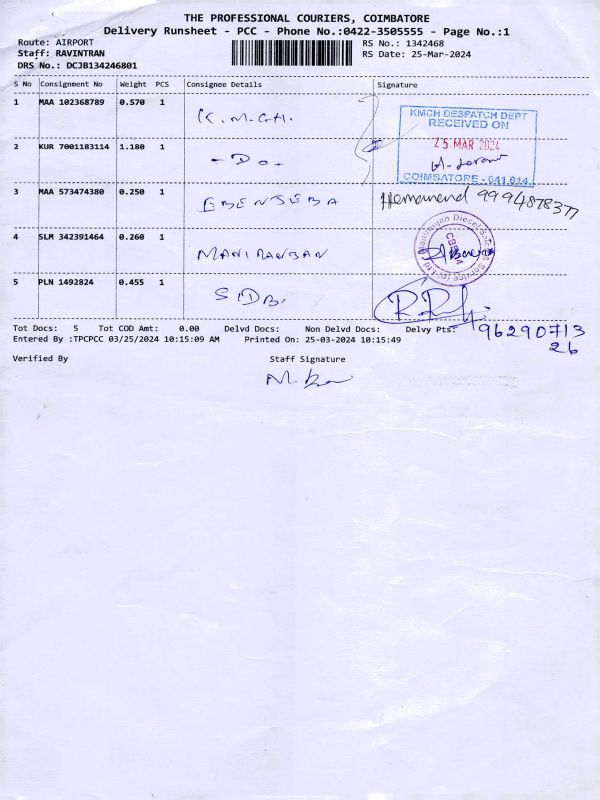 THE PROFESSIONAL COURIERS, COIMBATORE
Delivery Runsheet - PCC - Phone No.:0422-3505555 - Page No.:1
Route: AIRPORT
RS No.: 1342468
Staff: RAVINTRAN
RS Date: 25-Mar-2024
DRS No.: DCJB134246801
S No Consignment No Weight PCS Consignee Details Signature
1 MAA 102368789 0.570 1 K.M.C.H.
KMCH DESPATCH DEPT
RECEIVED ON
25 MAR 2024
COIMBATORE - 641 014
2 KUR 7001183114 1.180 1 - Do -
3 MAA 573474380 0.250 1 EBENSEBA Hemanand 9994878377
4 SLM 342391464 0.260 1 MANIRANJAN
Maniranjan Diesel Sales & Service (p) Ltd
5 PLN 1492824 0.455 1 SIDBI
Tot Docs: 5 Tot COD Amt: 0.00 Delvd Docs: Non Delvd Docs: Delvy Pts:
96290713
26
Entered By :TPCPCC 03/25/2024 10:15:09 AM Printed On: 25-03-2024 10:15:49
Verified By Staff Signature